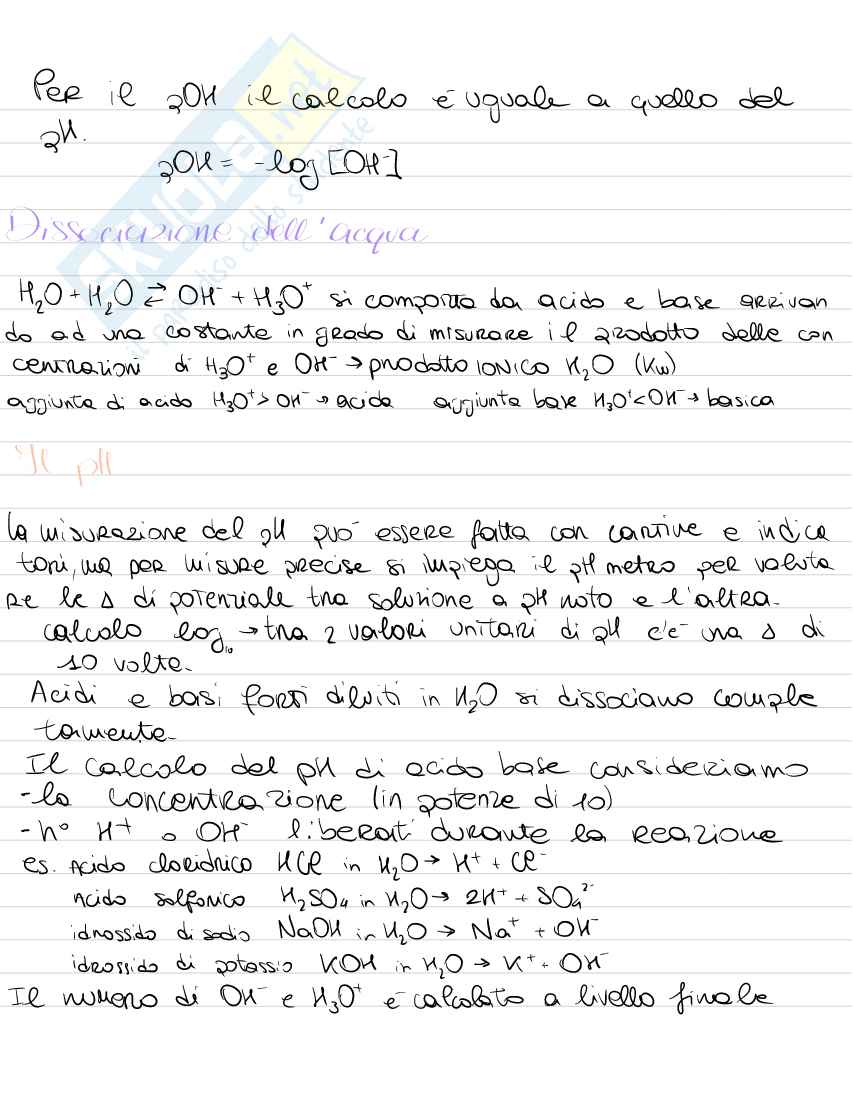 Per il pOH il calcolo è uguale a quello del
pH.
pOH = -log [OH⁻]
Dissociazione dell'acqua
H₂O + H₂O ⇄ OH⁻ + H₃O⁺ si comporta da acido e base arrivan
do ad una costante in grado di misurare il prodotto delle con
centrazioni di H₃O⁺ e OH⁻ → prodotto IONICO H₂O (Kw)
aggiunta di acido H₃O⁺ > OH⁻ → acida aggiunta base H₃O⁺ < OH⁻ → basica
Il pH
La misurazione del pH può essere fatta con cartine e indica
tori, ma per misure precise si impiega il pH metro per valuta
re le Δ di potenziale tra soluzione a pH noto e l'altra.
calcolo log₁₀ → tra 2 valori unitari di pH c'è una Δ di
10 volte.
Acidi e basi forti diluiti in H₂O si dissociano comple
tamente.
Il calcolo del pH di acido base consideriamo
- la concentrazione (in potenze di 10)
- n° H⁺ o OH⁻ liberati durante la reazione
es. Acido cloridrico HCl in H₂O → H⁺ + Cl⁻
Acido solforico H₂SO₄ in H₂O → 2H⁺ + SO₄²⁻
idrossido di sodio NaOH in H₂O → Na⁺ + OH⁻
idrossido di potassio KOH in H₂O → K⁺ + OH⁻
Il numero di OH⁻ e H₃O⁺ è calcolato a livello finale
SKUOLA.net
il paradiso dello studente